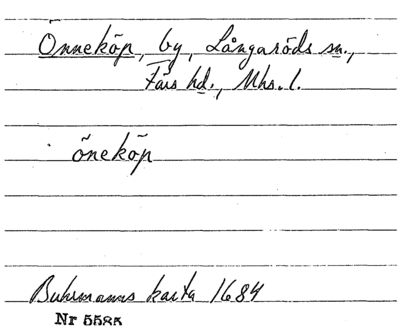 Önneköp, by, Långaröds sn.,
Färs hd., Mhs. l.
öneköp
Buhrmanns karta 1684
Nr 5585